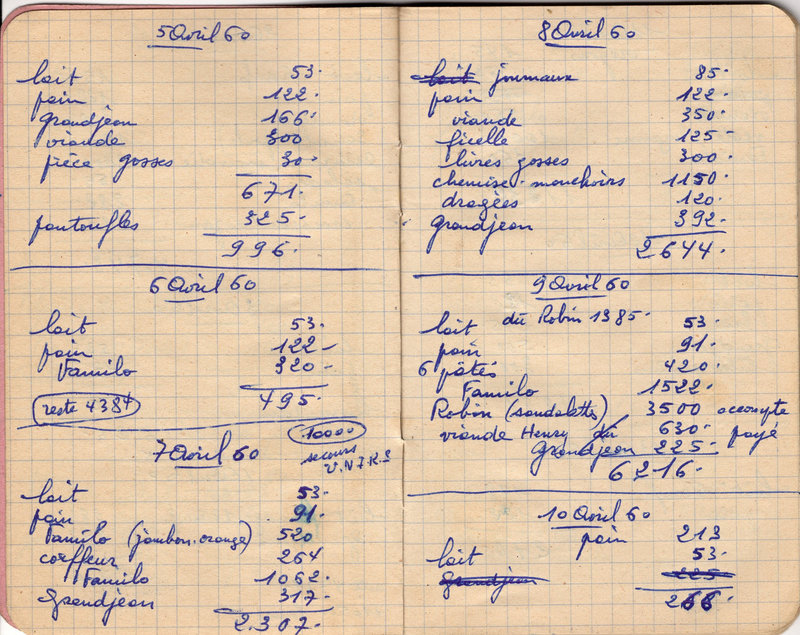 5 Avril 60
lait 53.
pain 122.
grandjean 166.
viande 300
pièce gosses 30.
671.
pantoufles 325.
996.
6 Avril 60
lait 53.
pain 122-
Familo 320-
495.
reste 4384
10000
secours
7 Avril 60
lait 53.
pain 91.
Familo (jambon. orange) 520
coiffeur 264
Familo 1062.
Grandjean 317.
2.307.
8 Avril 60
lait journaux 85.
pain 122.
viande 350.
ficelle 125-
livres gosses 300.
chemise. mouchoirs 1150.
dragées 120.
Grandjean 392.
2644.
9 Avril 60
dû Robin 1385.
lait 53.
pain 91.
6 pâtés 420.
Familo 1522.
Robin (sandalette) 3500 accompte
viande Henry dû 630. payé
Grandjean 225.
6216.
10 Avril 60
pain 213
lait 53.
Grandjean 225
266.